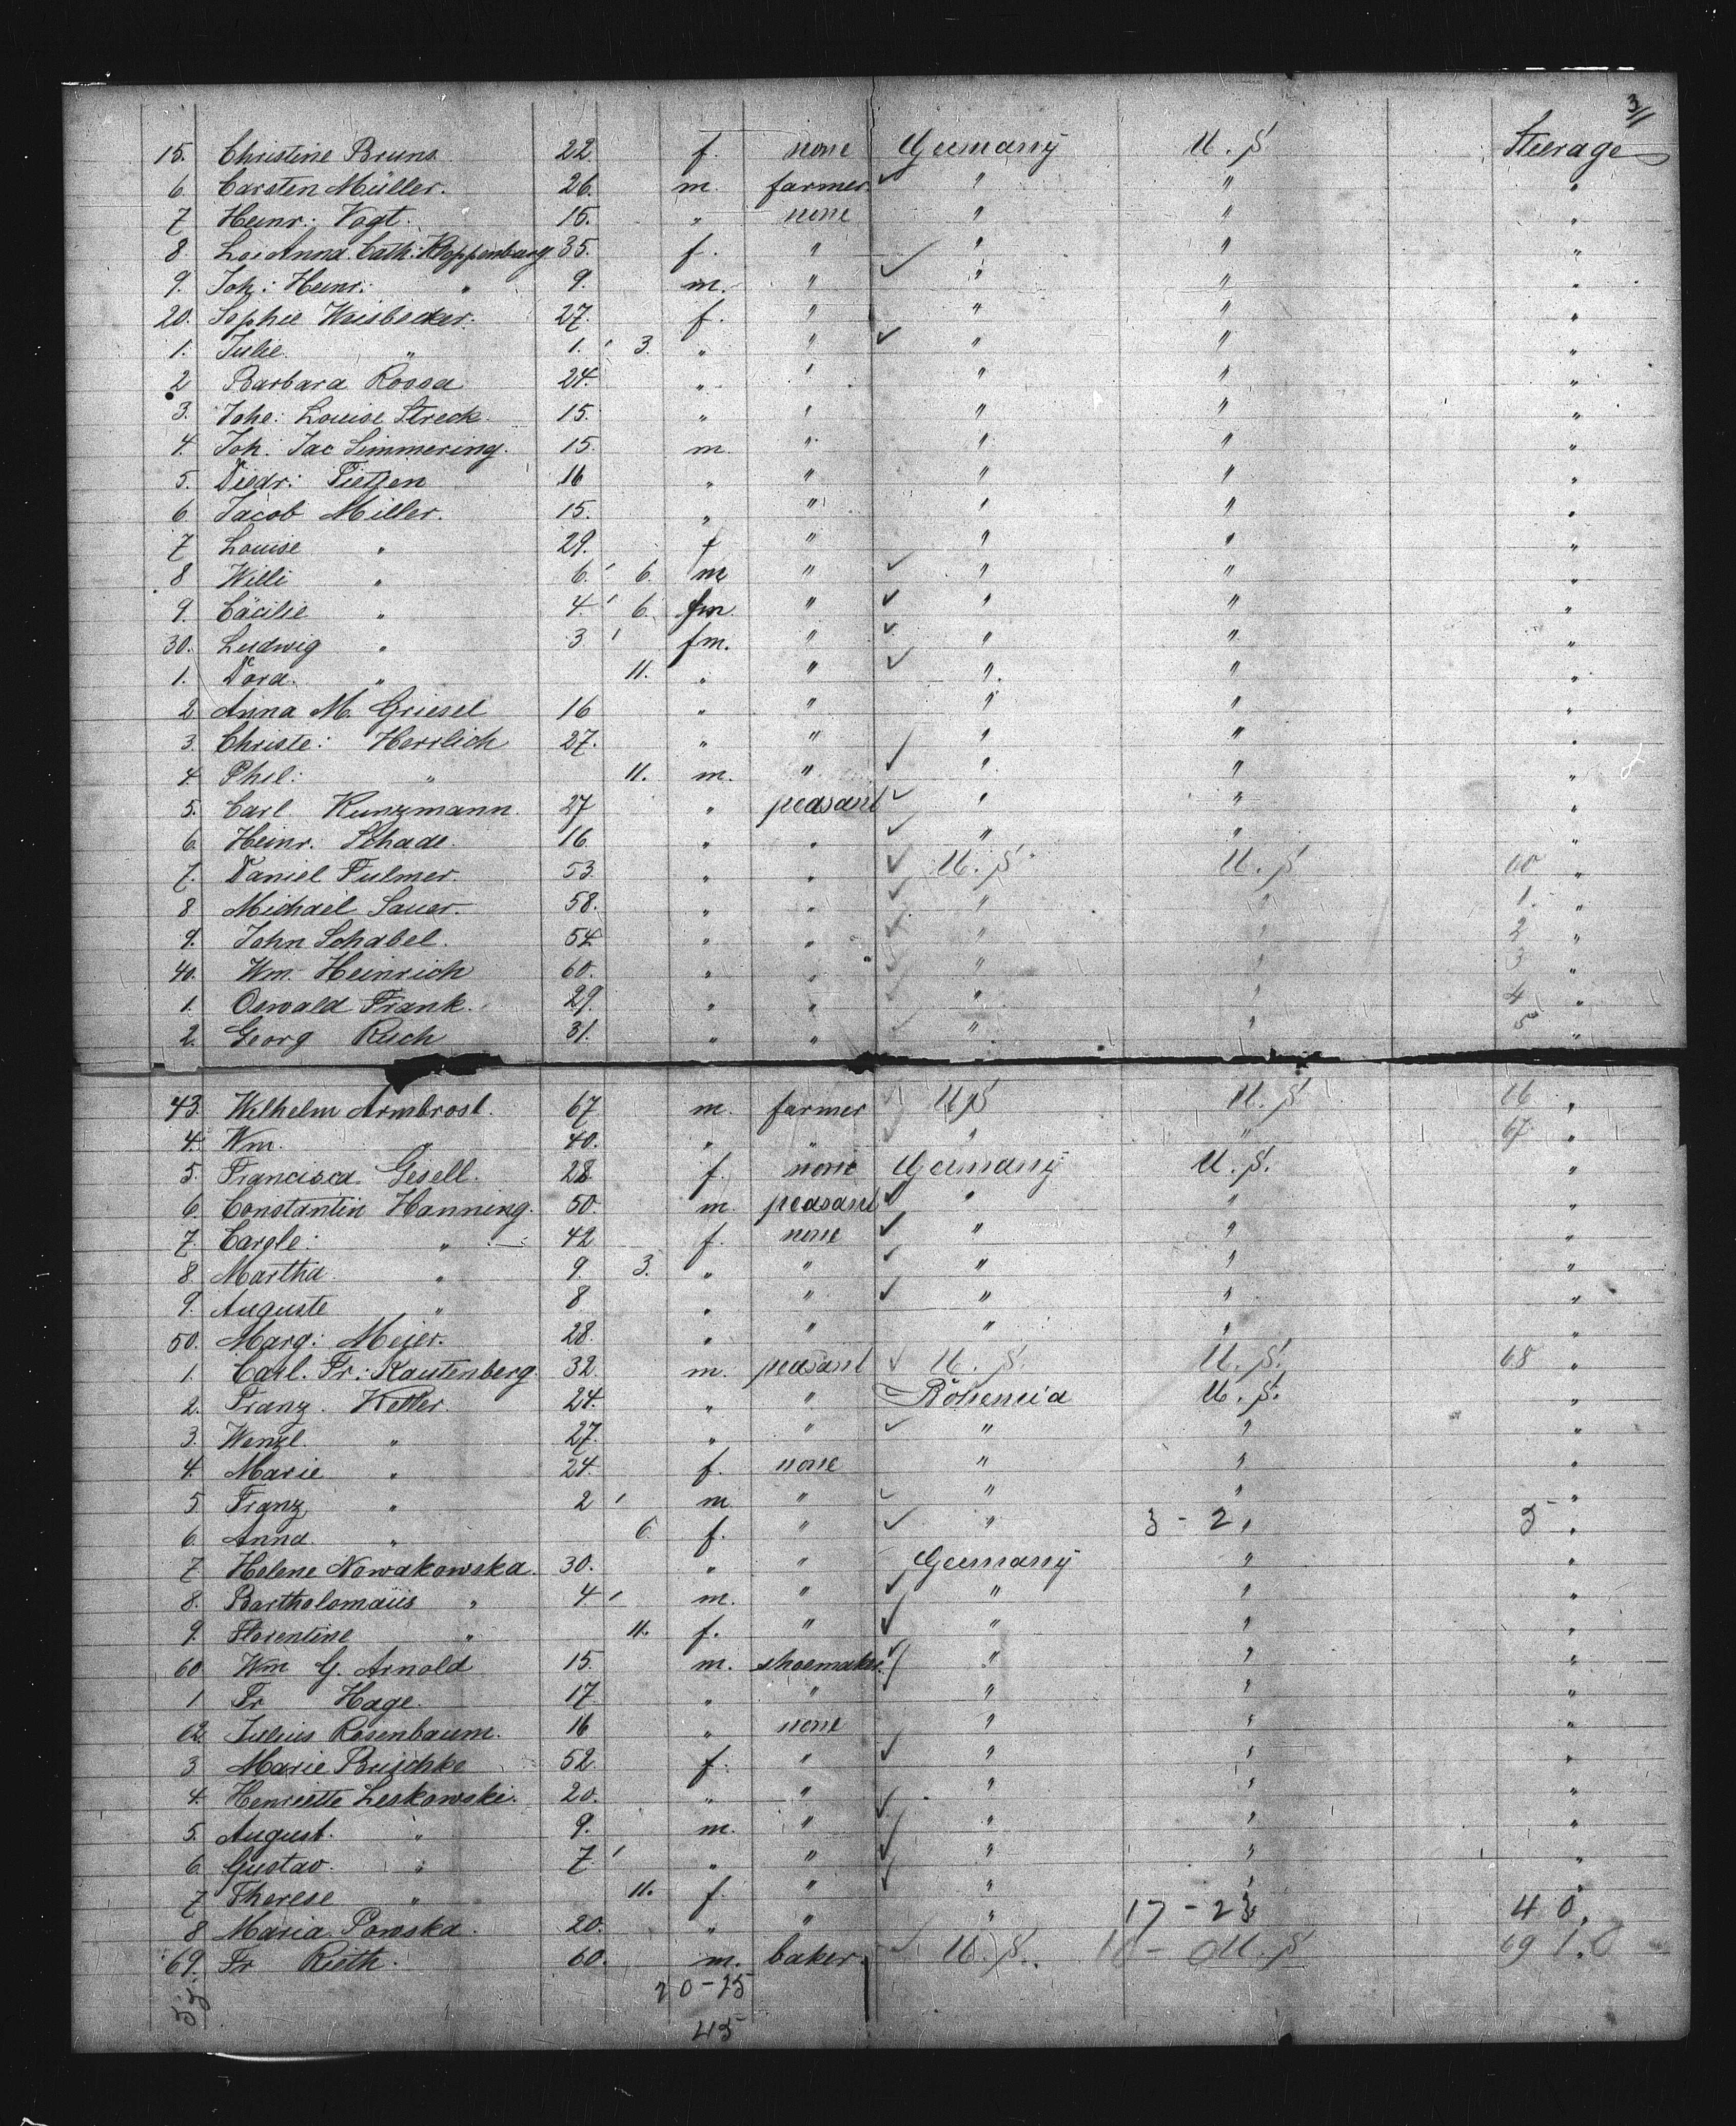 3/
15. Christine Bruns 22. f. none Germany U. S. Steerage
6. Carsten Müller. 26. m. farmer " " "
7 Heinr: Vogt. 15. " none " " "
8. Anna Cath: Kloppenburg 35. f. " " " "
9. Joh: Heinr: " 9. m. " " " "
20. Sophie Weisbecker. 27. f. " " " "
1. Julie " 1. 3. " " " " "
2 Barbara Rossa 24. " " " " "
3. Johe: Louise Streck 15. " " " " "
4. Joh. Jac Simmering. 15. m. " " " "
5. Diedr: Tietjen 16 " " " " "
6. Jacob Miller. 15. " " " " "
7 Louise " 29. f " " " "
8 Willi " 6. 6. m " " " "
9. Cäcilie " 4. 6. fm. " " " "
30. Ludwig " 3 fm. " " " "
1. Dora. " 11. " " " " "
2 Anna M. Griesel 16 " " " " "
3. Christe: Herrlich 27. " " " " "
4. Phil: " 11. m. " " " "
5. Carl Kunzmann. 27 " peasant " " "
6. Heinr. Schade. 16. " " " " "
7. Daniel Fulmer. 53. " " U. S. U. S. 60 "
8 Michael Sauer. 58. " " " " 1. "
9. John Schabel. 54. " " " " 2 "
40. Wm. Heinrich 60. " " " " 3 "
1. Oswald Frank. 29. " " " " 4 "
2. Georg Rich 31. " " " " 5 "
43. Wilhelm Armbrost. 67 m. farmer U S U. S. 66 "
4. Wm. " 40. " " " " 67 "
5. Francisca Gesell. 28. f. none Germany U. S. "
6. Constantin Hanning. 50. m. peasant " " "
7. " 42 f. none " " "
8. Martha " 9. 3. " " " " "
9. Auguste " 8 " " " " "
50. Marg: Meier. 28. " " " " "
1. Carl. Fr: Kautenberg. 32. m. peasant U. S. U. S. 68 "
2. Franz. Ketler. 24. " " Bohemia U. S. "
3. Wenzl. " 27. " " " " "
4. Marie " 24. f. none " " "
5. Franz " 2 m. " " " "
6. Anna. " 6. f. " " 3 - 2 " 5 "
7. Helene Nowakowska. 30. " " Germany " "
8. Bartholomäus " 4. m. " " " "
9. Florentine " 11. f. " " " "
60 Wm G. Arnold 15. m. shoemaker " " "
1. Fr Hage. 17. " " " " "
62. Julius Rosenbaum. 16 " none " " "
3 Marie Buschke 52 f. " " " "
4. Henriette Leskowski. 20. " " " " "
5. August. " 9. m. " " " "
6. Gustav. " 7. " " " " "
7. Therese " 11. f. " " " "
8 Maria Ponska. 20. " " " 17 - 23 40.
69. Fr Rieth. 60. m. baker. U. S. 10 - 0 U. S 69 1.0
55 20-25
45